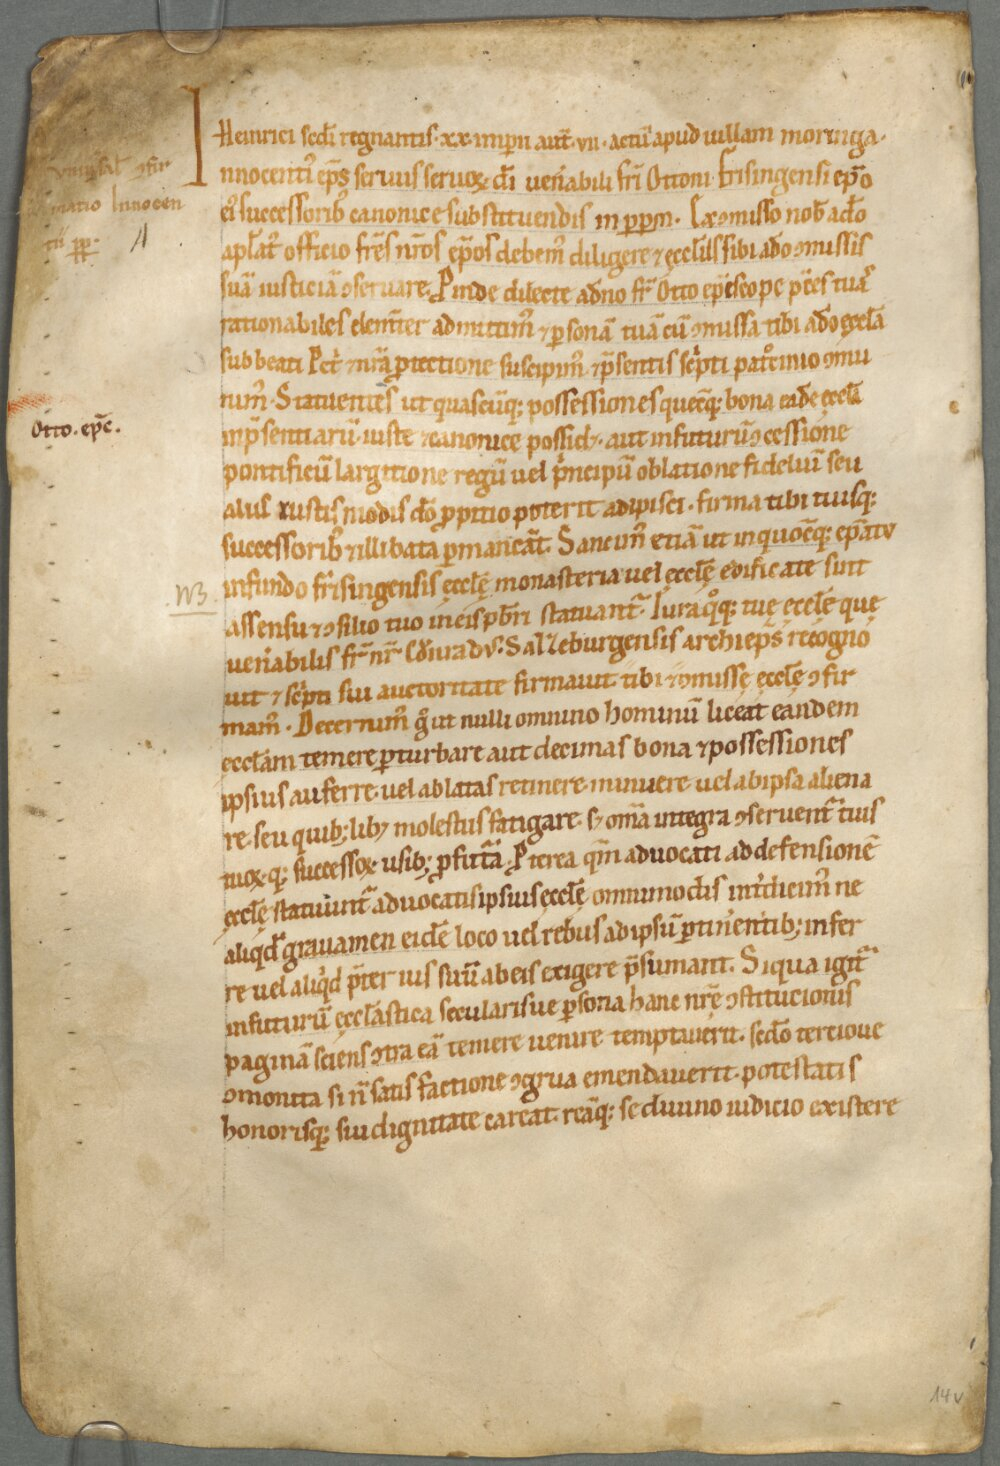 Heinrici sedi regnantis · xx · imperii aut̄ · vii · actū apud uillam moringa ·
Innocenti᷒ ep̄s seruus seruoꝝ dī uen̄abili frī Ottoni frisingensi ep̄o
ei᷒ successorib᷒ canonice substituendis in ꝑpm · Ex ꝯmisso nob̄ a dō
apl̄at᷒ officio fr̄es nr̄os ep̄os debem᷒ diligere ⁊ ęccl̄iis sibi a dō ꝯmissis
suā iusticiā ꝯseruare. Pinde dilecte a dn̄o fr̄ Otto ep̄iscope p̄ces tuas
rationabiles clem̄ter admittim᷒ ⁊ ꝑsonā tuā cū ꝯmissa tibi a dō ęccl̄a
sub beati Pet᷒ ⁊ nr̄a ꝓtectione suscipim᷒ ⁊ p̄sentis sc̄pti pat᷒cinio ꝯmu
nim᷒ · Statuentes ut quascūq; possessiones quecq; bona eadē ęccl̄a
inp̄sentiarū iuste ⁊ canonice possidꝫ · aut in futurū ꝯcessione
pontificū largitione regū uel p̄ncipū oblatione fideliū seu
aliis iustis modis dō ꝓpitio poterit adipisci · firma tibi tuisq;
successorib᷒ ⁊ illibata ꝑmaneāt. Sancim᷒ etiā ut in quocq; ep̄atu
in fundo frisingensis ęccl̄ę monasteria uel ęccl̄ę edificate sint
assensu ⁊ ꝯsilio tuo in eis p̄br̄i statuant᷒. Iura q̊q; tuę ęccl̄ę que
uen̄abilis fr̄ nr̄ Cōnradus Salzeburgensis archiep̄s recogno
uit ⁊ sc̄pti sui auctoritate firmauit tibi ⁊ ꝯmissę ęccl̄ę ꝯfir
mam᷒ · Decernim᷒ g̊ ut nulli omnino hominū liceat eandem
ęccl̄am temere ꝑturbare aut decimas bona ⁊ possessiones
ipsius auferre uel ablatas retinere minuere uel ab ipsa aliena
re seu quib; libꝫ molestiis fatigare · sꝫ om̄a integra ꝯseruent᷒ tuis
tuoꝝ q; successoꝝ usib; ꝓfut᷒a. P̄terea qm̄ aduocati ad defensionē
ęccl̄ę statuunt᷒ aduocatis ipsius ęccl̄ę omnimodis int᷒dicim᷒ ne
aliqd᷒ grauamen eidē loco uel rebus ad ipsū ꝑtinentib; infer
re uel aliqd p̄ter ius suū ab eis exigere p̄sumant. Siqua igit᷒
in futurū ęccl̄astica secularisue ꝑsona hanc nr̄ę ꝯstitucionis
paginā sciens ꝯtra eā temere uenire temptauerit · sedo terciove
ꝯmonita si n̄ satisfactione ꝯgrua emendauerit · potestatis
honorisq; sui dignitate careat · reāq; se diuino iudicio existere
ꝯfir
matio Innocen
tii pp ·
Otto · ep̄c ·
· NB ·
14v